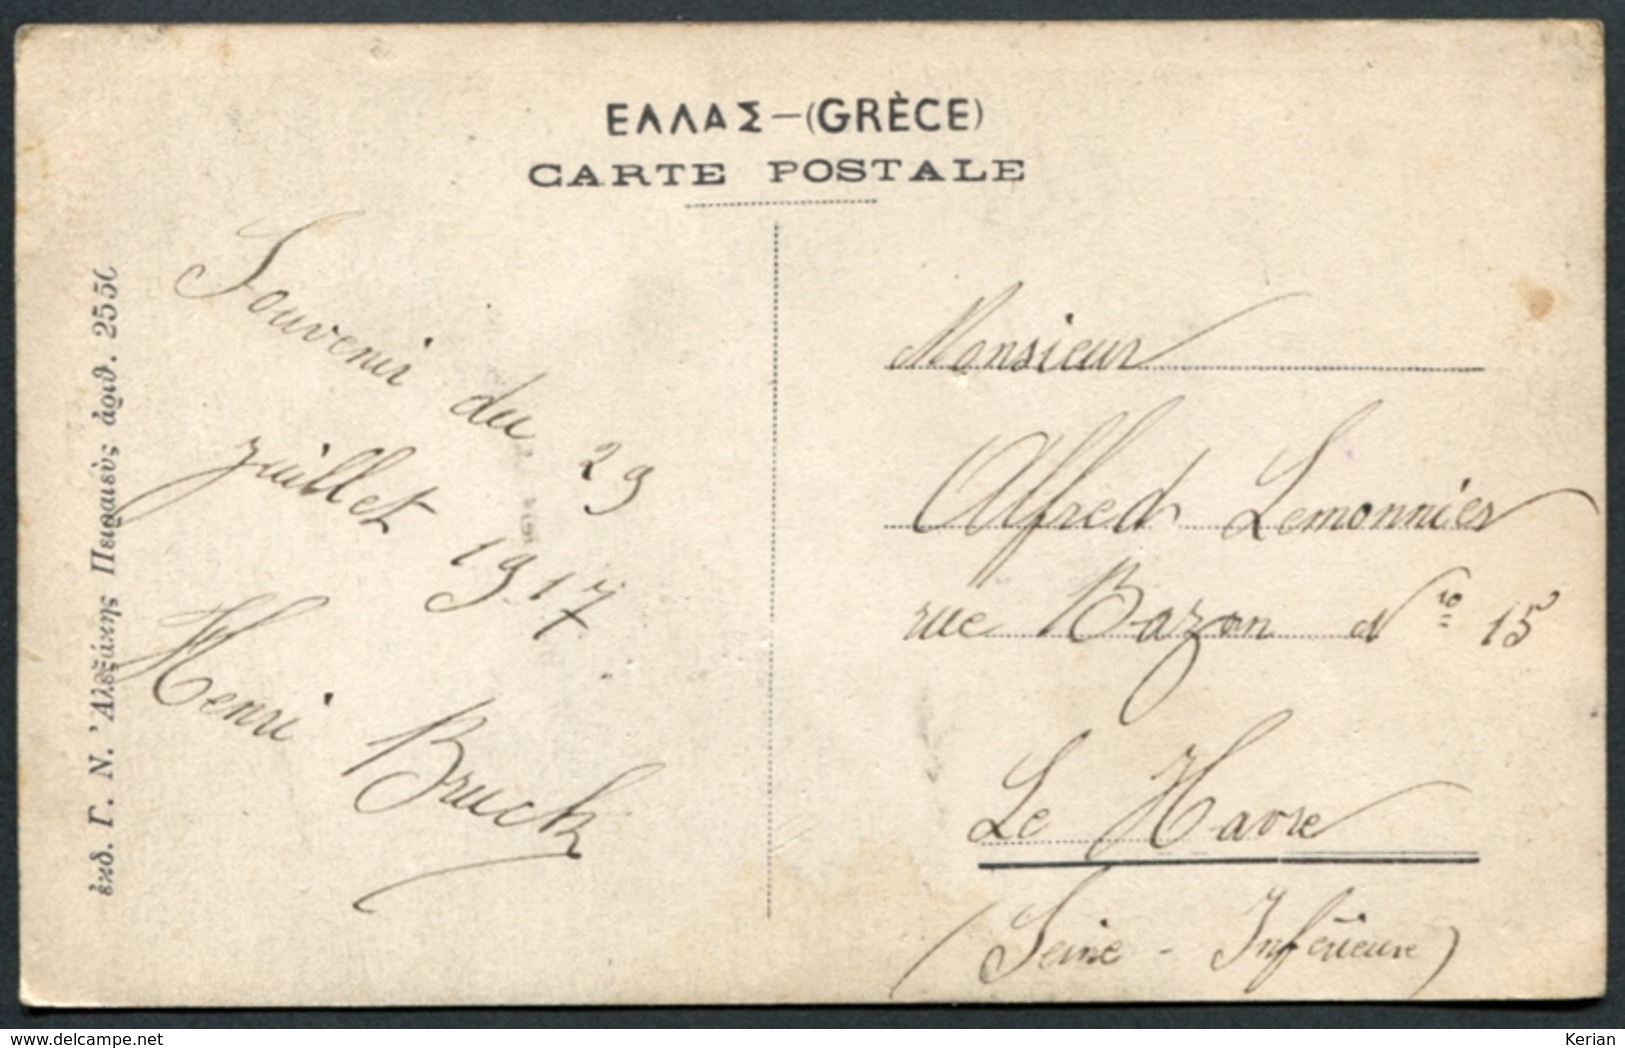 ΕΛΛΑΣ—(GRÈCE)
CARTE POSTALE
Souvenir du 29
juillet 1917
Henri Bruck
Monsieur
Alfred Lemonnier
rue Bazan No 15
Le Havre
(Seine - Inférieure)
ἐκδ. Γ. Ν. Ἀλεξάκης Πειραιεὺς ἀριθ. 2550
delcampe.net
Kerian